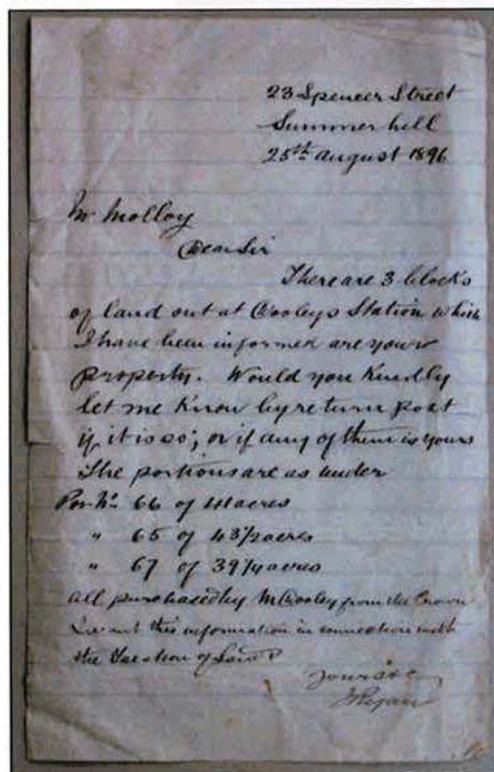 23 Spencer Street
Summer hill
25th August 1896
Mr Molloy
Dear Sir
There are 3 blocks
of land out at Cooleys Station which
I have been informed are your
property. Would you Kindly
let me Know by return post
if it is so; or if any of them is yours
The portions are as under
66 of acres
" 65 of 43½ acres
" 67 of 39¼ acres
all purchased by M Cooley from the Crown
I want this information in connection with
the of Land
Yours &c